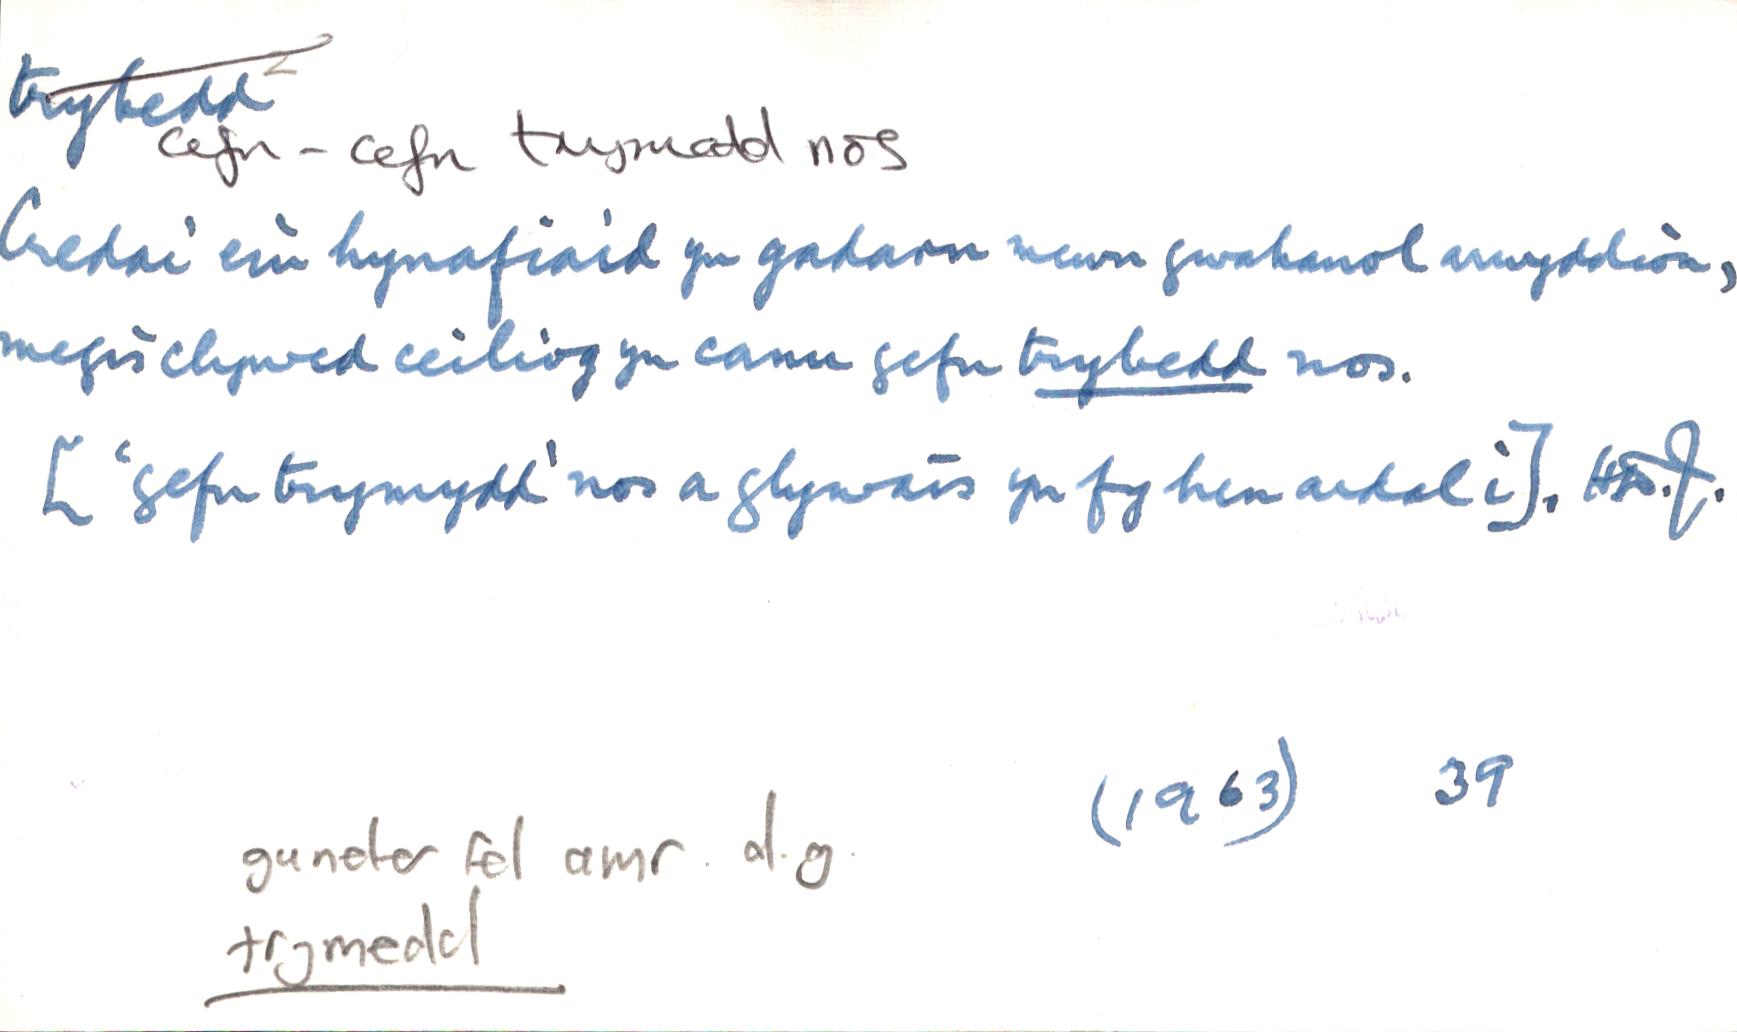 trybedd²
cefn - cefn trymedd nos
Credai ein hynafiaid yn gadarn mewn gwahanol arwyddion,
megis clywed ceiliog yn canu gefn trybedd nos.
[ 'gefn trymydd' nos a glywais yn fy hen ardal i].
(1963) 39
gunoter fel amr. d.g.
trymedd